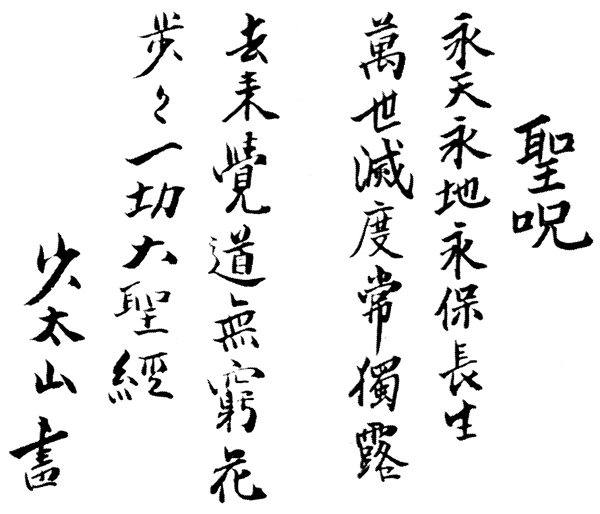 聖呪
永天永地永保長生
萬世滅度常獨露
去来覺道無窮花
歩々一切大聖經
少太山書